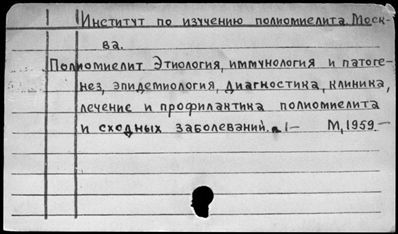 Институт по изучению полиомиелита. Моск-
ва.
Полиомиелит. Этиология, иммунология и патоге-
нез, эпидемиология, диагностика, клиника,
лечение и профилактика полиомиелита
и сходных заболеваний. 1— М, 1959.—